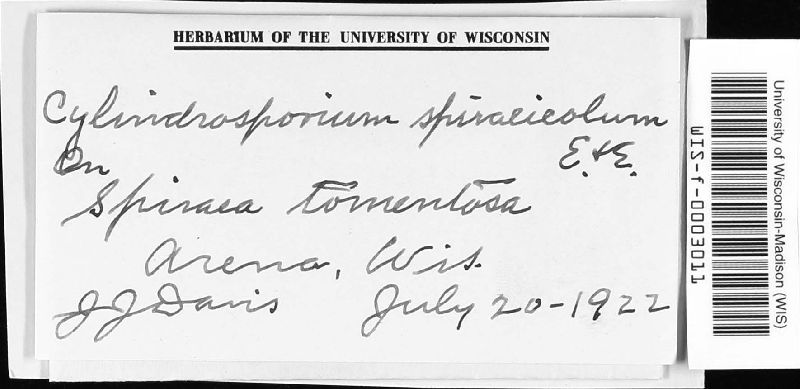 HERBARIUM OF THE UNIVERSITY OF WISCONSIN
Cylindrosporium spiraeicolum
E. & E.
On
Spiraea tomentosa
Arena, Wis.
J J Davis July 20-1922
University of Wisconsin-Madison (WIS)
WIS-f-0003011